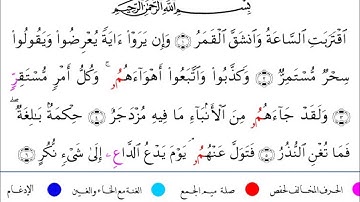 بِسْمِ اللَّهِ الرَّحْمَٰنِ الرَّحِيمِ
اقْتَرَبَتِ السَّاعَةُ وَانشَقَّ الْقَمَرُ ۝١ وَإِن يَرَوْا ءَايَةً يُعْرِضُوا وَيَقُولُوا
سِحْرٌ مُّسْتَمِرٌّ ۝٢ وَكَذَّبُوا وَاتَّبَعُوا أَهْوَاءَهُمُو ۚ وَكُلُّ أَمْرٍ مُّسْتَقِرٍّ
۝٣ وَلَقَدْ جَاءَهُمو مِنَ الْأَنبَاءِ مَا فِيهِ مُزْدَجَرٌ ۝٤ حِكْمَةٌ بَالِغَةٌ ۖ
فَمَا تُغْنِ النُّذُرُ ۝٥ فَتَوَلَّ عَنْهُمو ۘ يَوْمَ يَدْعُ الدَّاعِ إِلَىٰ شَيْءٍ نُّكُرٍ ۝٦
الحرف المخالف لحفص صلة ميم الجمع الغنة مع الخاء والغين الإدغام